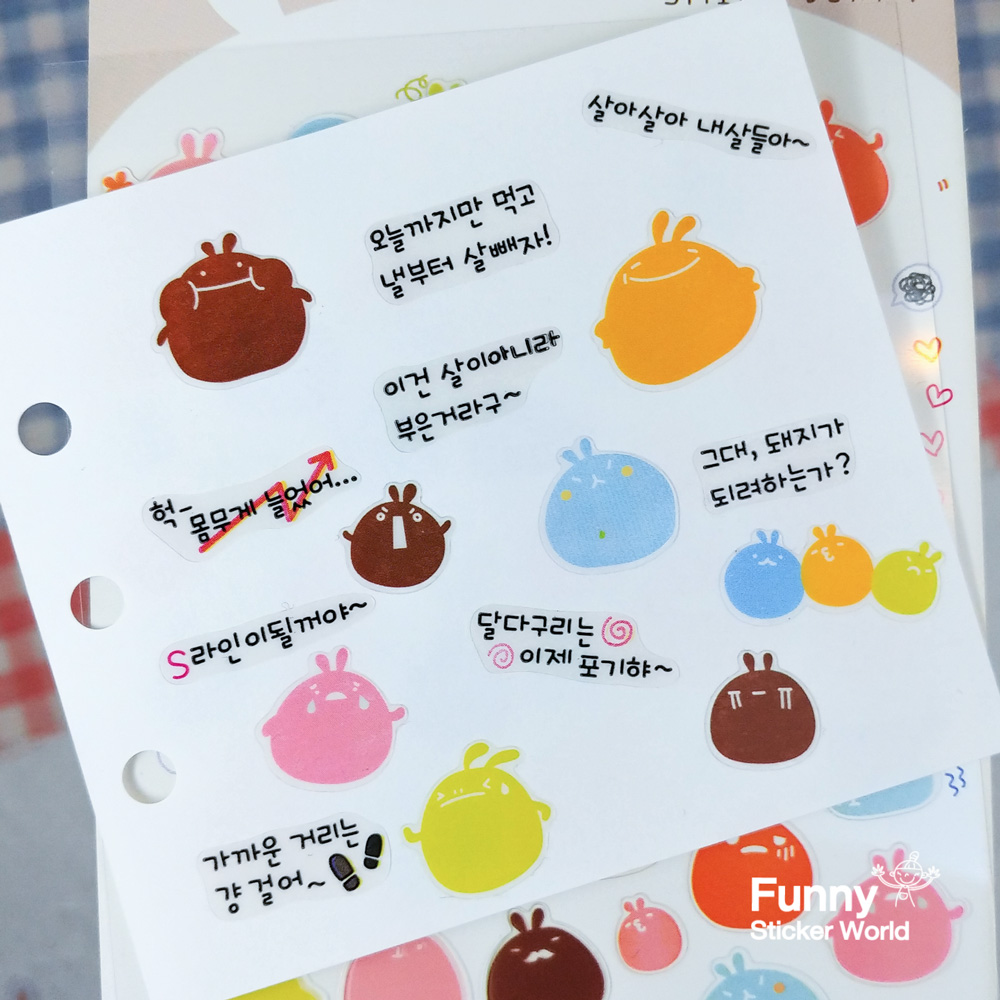 살아살아 내살들아~
오늘까지만 먹고
낼부터 살빼자!
이건 살이아니라
부은거라구~
그대, 돼지가
되려하는가?
헉-
몸무게 늘었어...
S라인이될꺼야~
달다구리는
이제 포기햐~
가까운 거리는
걍 걸어~
33
Funny
Sticker World